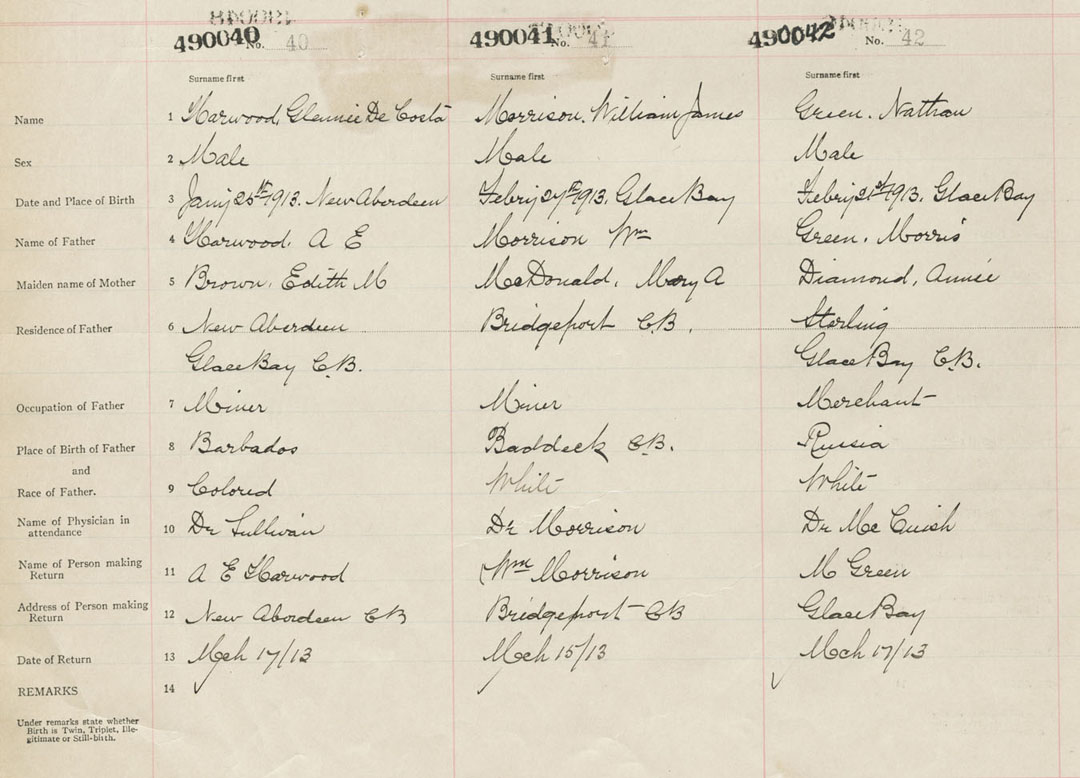 490040 No. 40 490041 No. 41 490042 No. 42
Surname first Surname first Surname first
Name 1 Harwood, Glennie De Costa Morrison, William James Green, Nathan
Sex 2 Male Male Male
Date and Place of Birth 3 Jany 25th 1913, New Aberdeen Febry 27th 1913, Glace Bay Febry 21st 1913, Glace Bay
Name of Father 4 Harwood, A E Morrison Wm Green, Morris
Maiden name of Mother 5 Brown, Edith M McDonald, Mary A Diamond, Annie
Residence of Father 6 New Aberdeen Bridgeport C.B. Sterling
Glace Bay C.B. Glace Bay C.B.
Occupation of Father 7 Miner Miner Merchant
Place of Birth of Father 8 Barbados Baddeck C.B. Russia
and
Race of Father. 9 Colored White White
Name of Physician in
attendance 10 Dr Sullivan Dr Morrison Dr McCuish
Name of Person making
Return 11 A E Harwood Wm Morrison M Green
Address of Person making
Return 12 New Aberdeen CB Bridgeport CB Glace Bay
Date of Return 13 Mch 17/13 Mch 15/13 Mch 17/13
REMARKS 14
Under remarks state whether
Birth is Twin, Triplet, Ille-
gitimate or Still-birth.